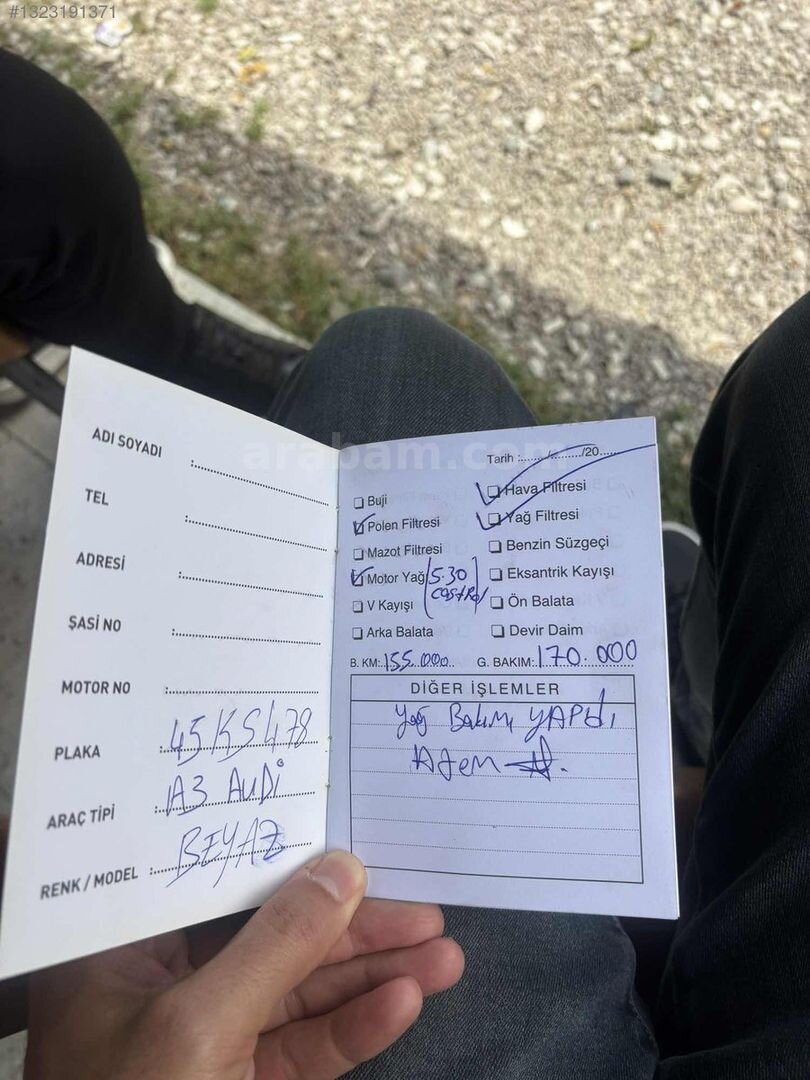 #1323191371
arabam.com
ADI SOYADI :
TEL :
ADRESİ :
ŞASİ NO :
MOTOR NO
PLAKA 45 KS 478
ARAÇ TİPİ : A3 AUDİ
RENK / MODEL : BEYAZ
Tarih :....../....../20......
Buji
Hava Filtresi
Polen Filtresi
Yağ Filtresi
Mazot Filtresi
Benzin Süzgeçi
Motor Yağ (5.30
castrol)
Eksantrik Kayışı
V Kayışı
Ön Balata
Arka Balata
Devir Daim
B. KM: 155.000 G. BAKIM: 170.000
DİĞER İŞLEMLER
Yağ Bakımı YAPtdı